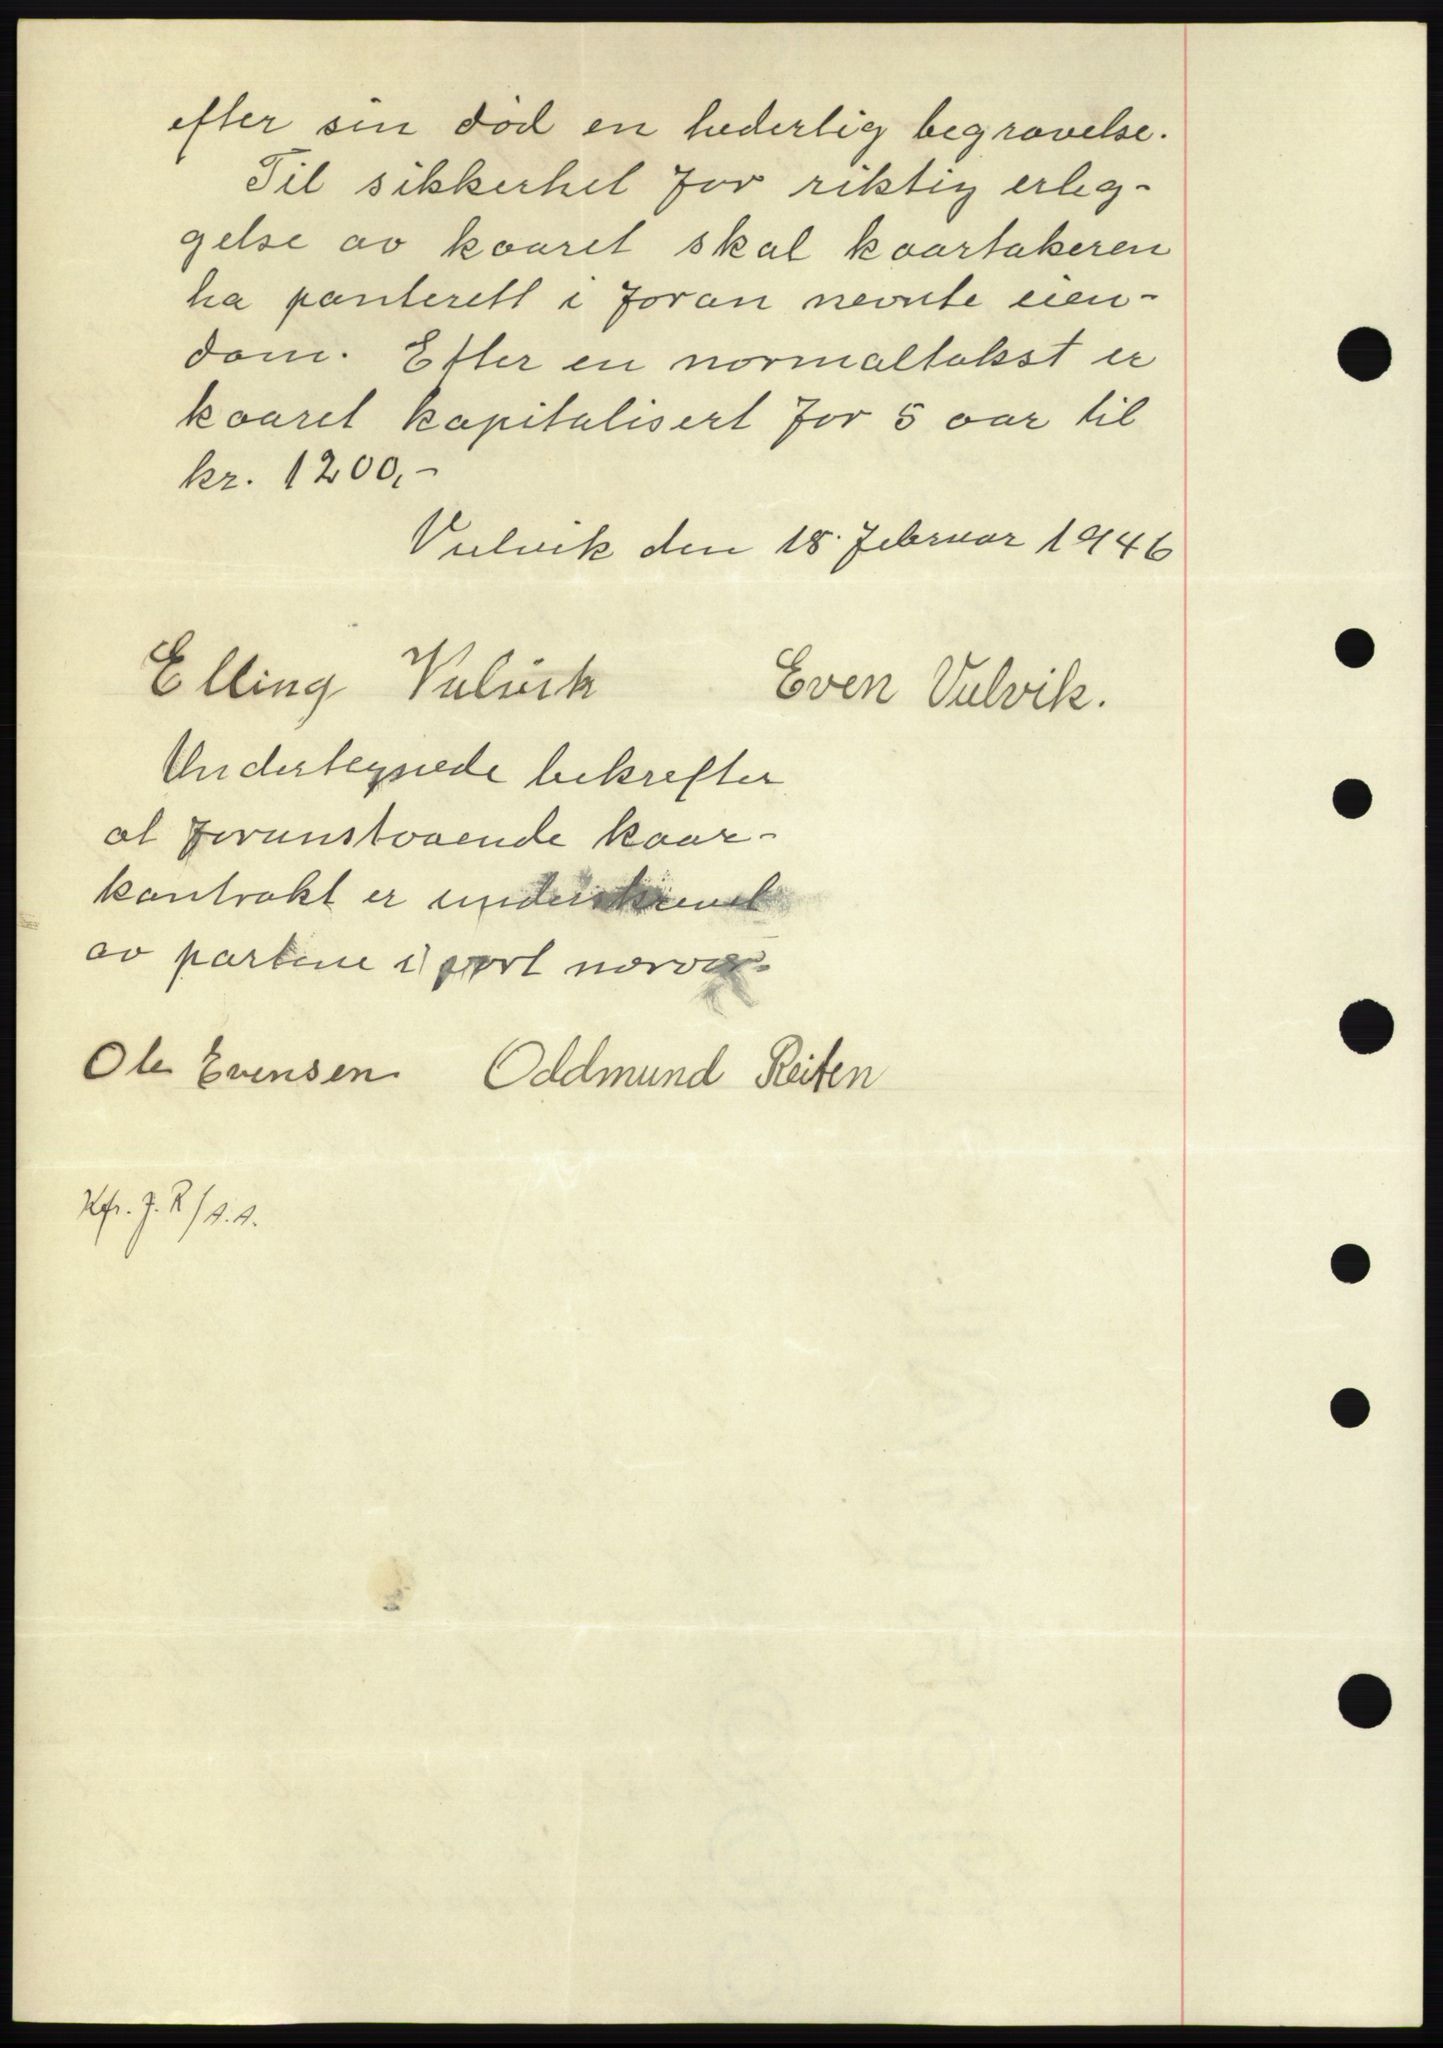 efter sin død en hederlig begravelse.
Til sikkerhet for riktig erleg-
gelse av kaaret skal kaartakeren
ha panterett i foran nevnte eien-
dom. Efter en normaltakst er
kaaret kapitalisert for 5 aar til
kr. 1200,-
Vulvik den 18. februar 1946
Elling Vulvik Even Vulvik.
Undertegnede bekrefter
at foranstaaende kaar-
kontrakt er underskrevet
av partene i vort nærvær.
Ole Evensen Oddmund Reiten
Kfr. J. R/A.A.